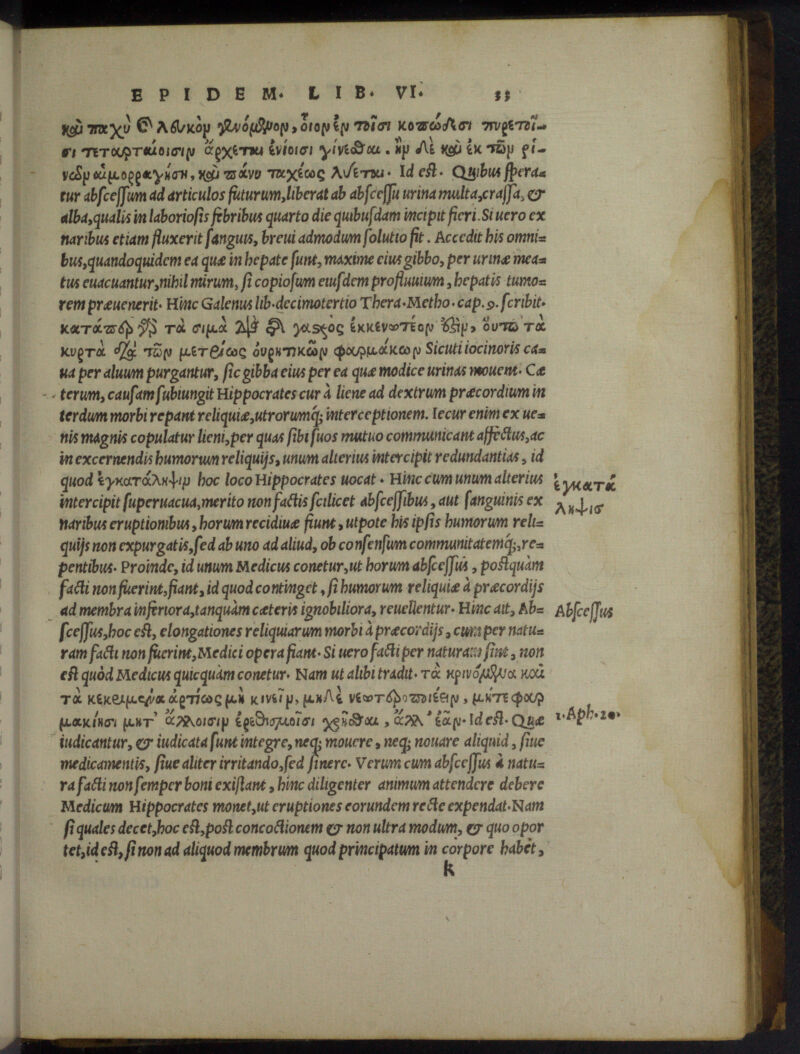 EPIDEM. LIB. VI. 55
καὶ παχὺ ϗ λευκὸν γενόμενον, οἷον ἐν τοῖσι κοπώδεσι πυρετοῖ-
σι τεταρταίοισιν ἄρχεται ἐνίοισι γίνεσθαι. ἢν δὲ καὶ ἐκ τῶν ῥι-
νῶν αἱμοῤῥαγήσῃ, καὶ πάνυ ταχέως λύεται. Id est. Quibus spera=
tur abscessum ad articulos futurum, liberat ab abscessu urina multa, crassa, &
alba, qualis in laboriosis febribus quarto die quibusdam incipit fieri. Si uero ex
naribus etiam fluxerit sanguis, breui admodum solutio fit. Accedit his omni=
bus, quandoquidem ea quæ in hepate sunt, maxime eius gibbo, per urinæ mea=
tus euacuantur, nihil mirum, si copiosum eiusdem profluuium, hepatis tumo=
rem præuenerit. Hinc Galenus lib. decimotertio Thera. Metho. cap. 9. scribit.
κατάπερ γὰρ τὰ σιμὰ διὰ τῆς γαστρὸς ἐκκενωτέον ἐστὶν, οὕτω τὰ
κυρτὰ διὰ τῶν μετρίως οὐρητικῶν φαρμάκων Sicuti iocinoris ca=
ua per aluum purgantur, sic gibba eius per ea quæ modice urinas mouent. Cæ
terum, causam subiungit Hippocrates cur à liene ad dextrum præcordium in
terdum morbi repant reliquiæ, utrorumq; interceptionem. Iecur enim ex ue=
nis magnis copulatur lieni, per quas sibi suos mutuo communicant affectus, ac
in excernendis humorum reliquijs, unum alterius intercipit redundantias, id
quod ἐγκατάληψιν hoc loco Hippocrates uocat. Hinc cum unum alterius
intercipit superuacua, merito non factis scilicet abscessibus, aut sanguinis ex
naribus eruptionibus, horum recidiuæ fiunt, utpote his ipsis humorum reli=
quijs non expurgatis, sed ab uno ad aliud, ob consensum communitatemq;, re=
pentibus. Proinde, id unum Medicus conetur, ut horum abscessus, postquàm
facti non fuerint, fiant, id quod continget, si humorum reliquiæ à præcordijs
ad membra inferiora, tanquàm cæteris ignobiliora, reuellentur. Hinc ait, Ab=
scessus, hoc est, elongationes reliquiarum morbi à præcordijs, cum per natu=
ram facti non fuerint, Medici opera fiant. Si uero facti per naturam sint, non
est quòd Medicus quicquàm conetur. Nam ut alibi tradit. τὰ κρινόμενα καὶ
τὰ κεκριμένα ἀρτίως μὴ κινεῖν, μηδὲ νεωτεροποιέειν, μήτε φαρ
μακίησι μήτ' ἄλλοισιν ἐρεθισμοῖσι χρῆσθαι, ἀλλ' ἐᾶν. Id est. Quæ
iudicantur, & iudicata sunt integre, neq; mouere, neq; nouare aliquid, siue
medicamentis, siue aliter irritando, sed sinere. Verum cum abscessus à natu=
ra facti non semper boni existant, hinc diligenter animum attendere debere
Medicum Hippocrates monet, ut eruptiones eorundem recte expendat. Nam
si quales decet, hoc est, post concoctionem & non ultra modum, & quo opor
tet, id est, si non ad aliquod membrum quod principatum in corpore habet,
k
ἐγκατά
ληψις
Abscessus
1. Aph. 20.